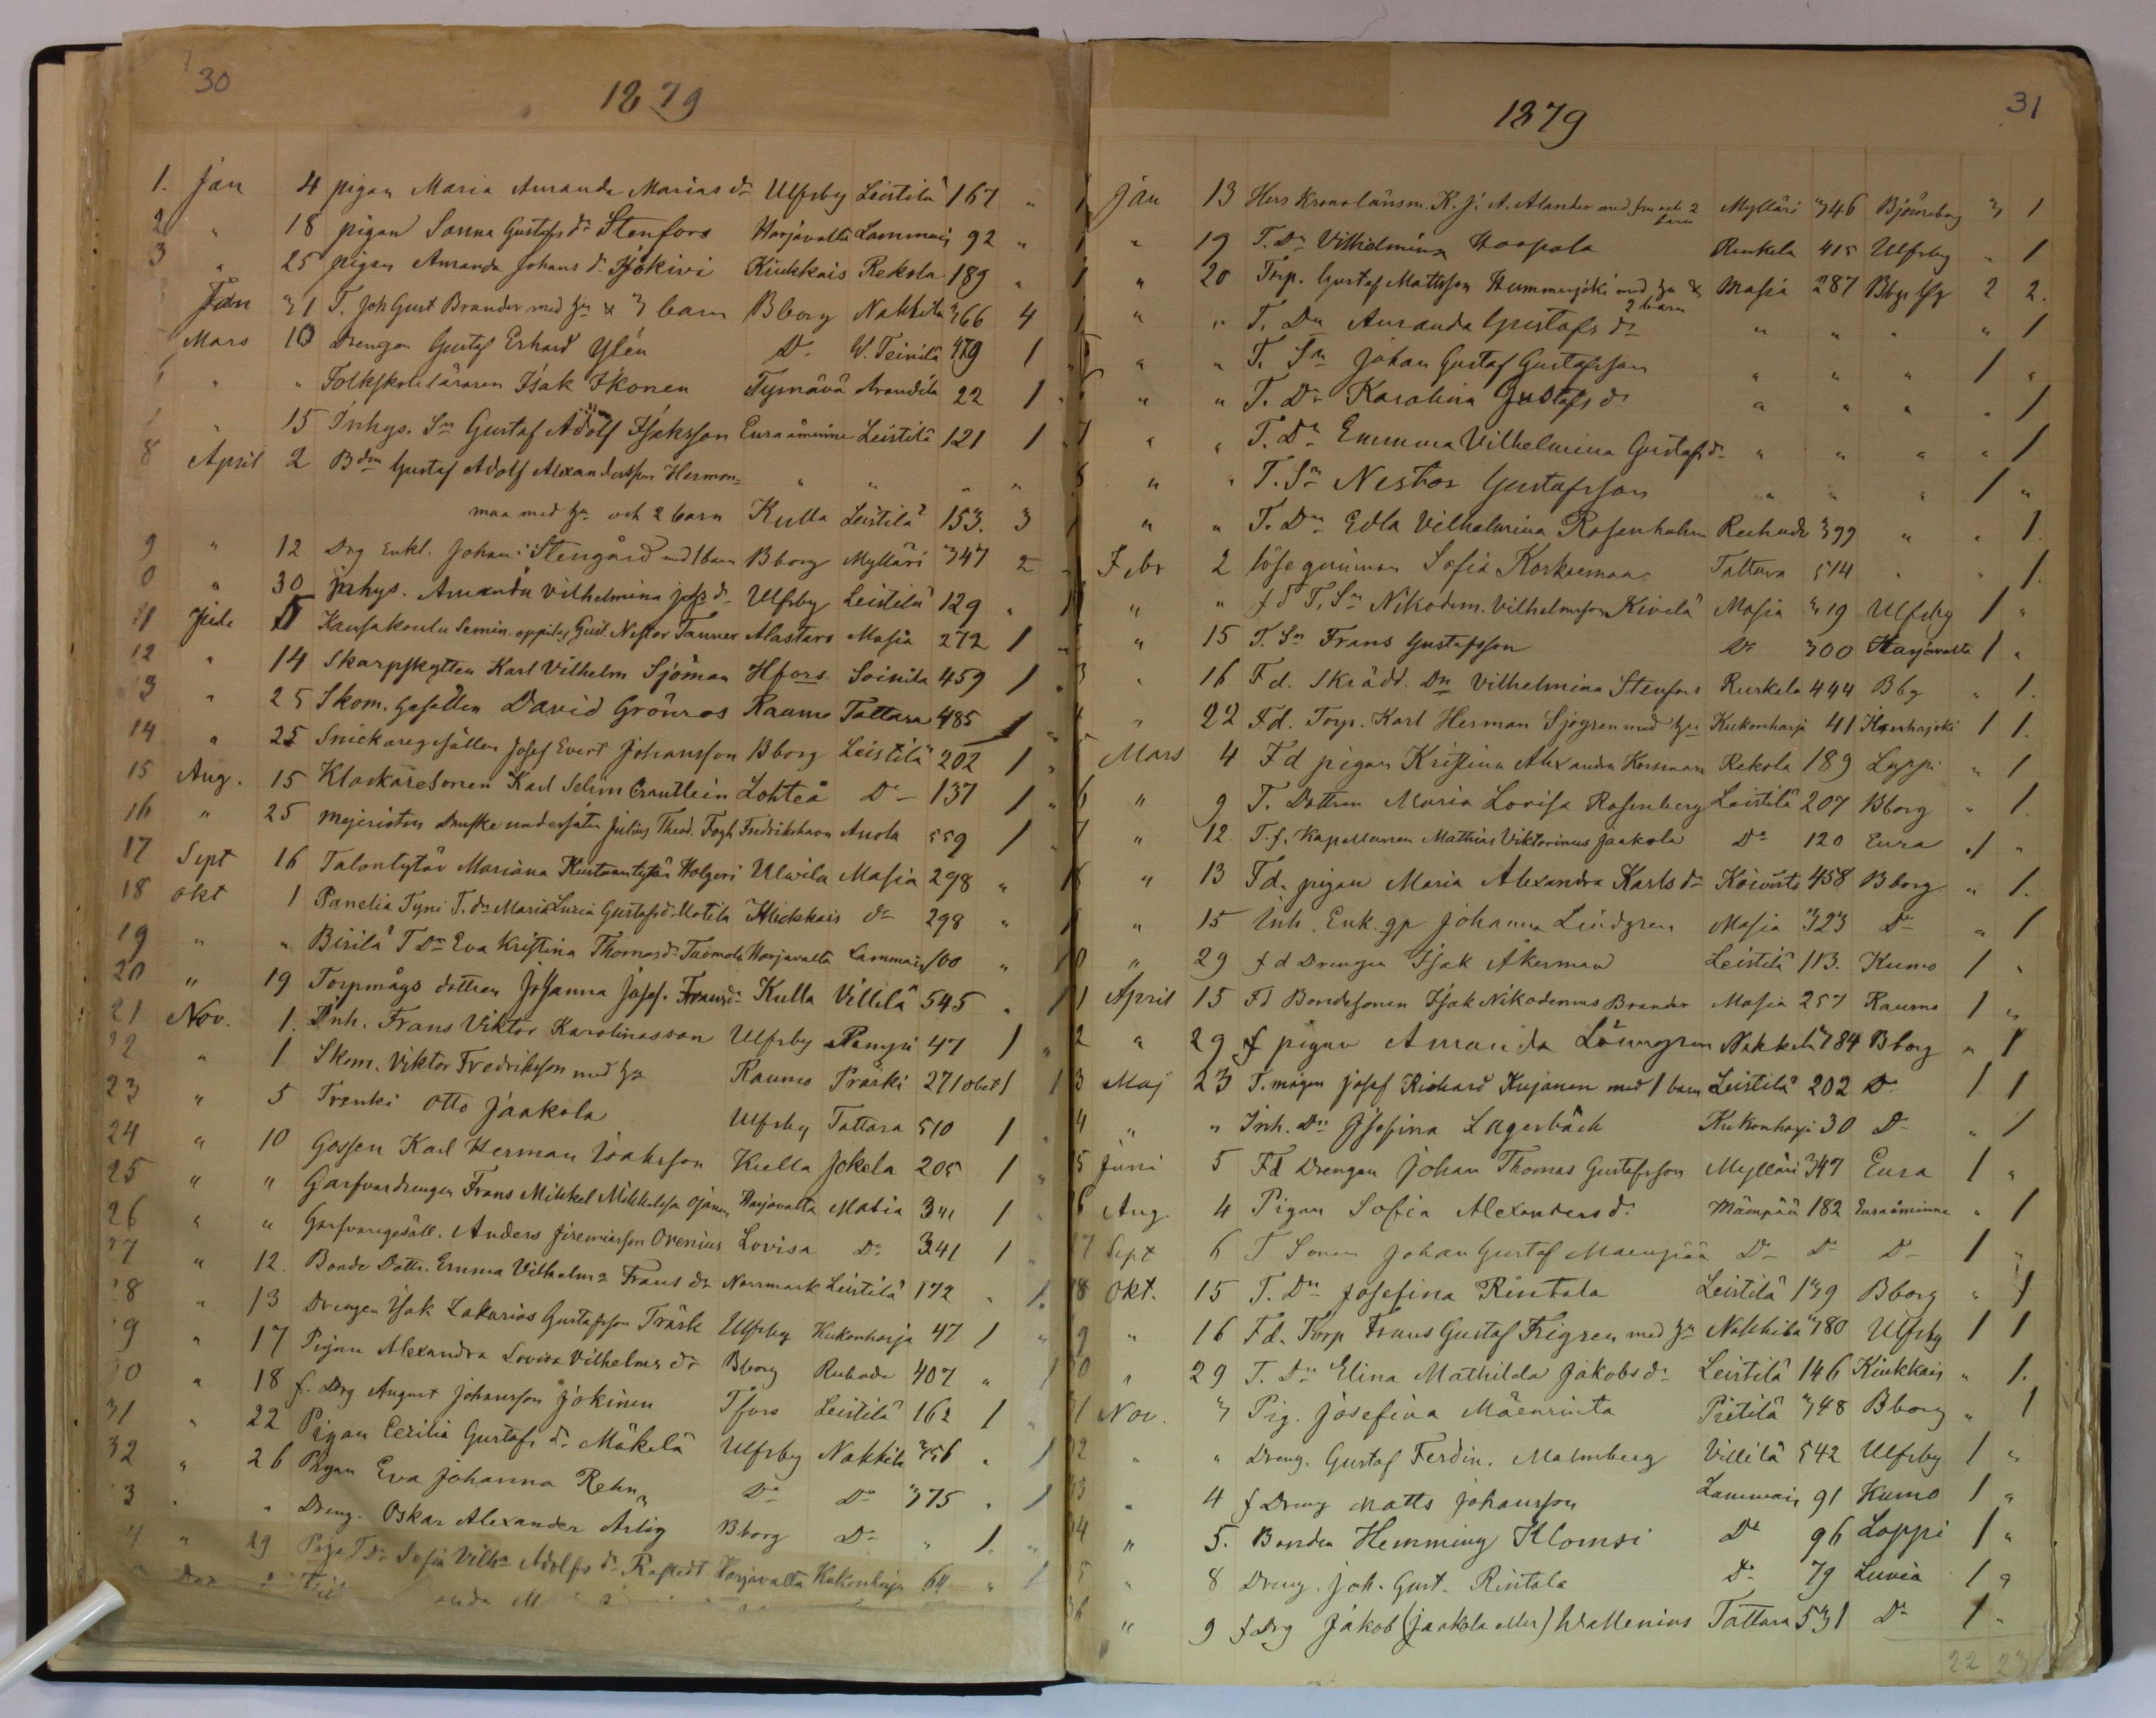 30
1879
1. Jan 4 pigan Maria Amanda Marias dr Ulfsby Leistilä 167 " 1
2 " 18 pigan Sanna Gustafs dr Stenfors Harjavalta Lammais 92 " 1
3 " 25 pigan Amanda Johans dr Kiukkais Rekola 189 " 1
Jan 31 T. Joh Gust Brander med h:u & 3 barn Bborg Nakkila 366 4
Mars 10 Drengen Gustaf Erhard Ylén Do V. Teinilä 479 1
" " Folkskoleläraren Isak Ikonen Tyrnävä Arandila 22 1
" 15 Inhys. Sn Gustaf Adolf Isaksson Euraåminne Leistilä 121 1
8 April 2 Bdn Gustaf Adolf Alexandersson Hermon= " " " "
maa med h:u och 2 barn Kulla Leistilä 153. 3
9 " 12 Drg Enkl. Johan Stengård med 1 barn Bborg Mylläri 347 2
0 " 30 Inhys. Amanda Vilhelmina Josefs dr Ulfsby Leistilä 129 " 1
11 Kansakoulu Semin. oppilas Gust Nestor Tanner Alastaro Masia 272 1
12 " 14 Skarpskytten Karl Vilhelm Sjöman Hfors Soinila 459 1
13 " 25 Skom. gesällen David Grönros Raumo Tattara 485 1
14 " 25 Snickaregesällen Josef Evert Johansson Bborg Leistilä 202 1
15 Aug. 15 Klockaresonen Karl Selim Lohteå Do 137 1
16 " 25 Mejeristen Danske undersåten Julius Theod. Fogh Fredrikshavn Anola 559 1
17 Sept 16 Talontytär Mariana Kustaantytär Holgeri Ulvila Masia 298 " 1
18 Okt 1 Panelia Tyni T. dr Maria Luzia Gustafsdr Uotila Kiukkais Do 298 " 1
19 " " Birilä T Dr Eva Kristina Thomasdr Tuomola Harjavalta Lammais 100 " 1
20 " 19 Torpmågs dottren Johanna Josef. Fransdr Kulla Villilä 545 " 1
21 Nov. 1. Inh. Frans Viktor Karolinasson Ulfsby Pampi 47 1
22 " 1 Skom. Viktor Fredriksson med h:u Raumo Präski 271 1 1
23 " 5 Trenki Otto Jaakola Ulfsby Tattara 510 1
24 " 10 Gossen Karl Herman Isaksson Kulla Jokela 205 1
25 " " Garfvardrengen Frans Mikkel Mikkelsson Ojanen Harjavalta Masia 341 1
26 " " Garfvaregesäll. Anders Jeremiasson Orenius Lovisa Do 341 1
27 " 12. Bonde Dottr. Emma Vilhelma Frans dr Norrmark Leistilä 172 " 1.
28 " 13 Drengen Isak Zakarias Gustafsson Träsk Ulfsby Kukonharja 47 1
29 " 17 Pigan Alexandra Lovisa Vilhelms dr Bborg Ruhade 407 " 1
30 " 18 f. Drg August Johansson Jokinen Tfors Leistilä 162 1
31 " 22 Pigan Cecilia Gustafs dr Mäkelä Ulfsby Nakkila 356 " 1
32 " 26 Pigan Eva Johanna Rehn Do Do 375 " 1
3 " " Dreng. Oskar Alexander Ärlig Bborg Do " 1 "
4 " 29 Piga T Dr Sofia Vilha Adolfs dr Harjavalta Kukonharja 64 " 1
31
1879
Jan 13 Herr Kronolänsm. K. J. A. Alander med fru och 2 barn Mylläri 346 Björneborg 3 1
" 19 T. Dr Vilhelmina Haapala Ruskela 415 Ulfsby " 1
" 20 Torp. Gustaf Mattsson Hammarjoki med h:u & 2 barn Masia 287 2 2.
" " T. Dn Amanda Gustafs dr " " " " 1
" " T. Sn Johan Gustaf Gustafsson " " " 1 "
" " T. Dr Karolina Gustafs dr " " " " 1
7 " " T. Dr Emma Vilhelmina Gustafs dr " " " " 1
8 " " T. Sn Nestor Gustafsson " " " 1 "
" " T. Dn Edla Vilhelmina Rosenholm Ruhade 399 " " 1.
Febr 2 lösegumman Sofia Korkeemaa Tattara 514 " " 1.
" " f d T. Sn Nikodem. Vilhelmsson Kivelä Masia 319 Ulfsby 1 "
" 15 T. Sn Frans Gustafsson Do 300 Harjavalta 1 "
3 " 16 F d. Skrädd. Dn Vilhelmina Stenfors Ruskela 444 Bbg " 1.
4 " 22 Fd. Torp. Karl Herman Sjögren med h:u Kukonharja 41 1 1.
Mars 4 F d pigan Kristina Alexandra Rekola 189 Lappi " 1
6 " 9 T. Dottren Maria Lovisa Rosenberg Leistilä 207 Bborg " 1.
7 " 12. T. f. Kapellanen Mathias Viktorinus Jaakola Do 120 Eura 1 "
" 13 F d. pigan Maria Alexandra Karls dr Koivisto 458 Bborg " 1.
" 15 Inh. Enk. gp Johanna Lindgren Masia 323 Do " 1
0 " 29 f d Drengen Isak Åkerman Leistilä 113. Kumo 1 "
1 April 15 Fd Bondesonen Isak Nikodemus Brander Masia 257 Raumo 1 "
2 " 29 f pigan Amanda Löwgren Nakkila 384 Bborg " 1
3 Maj 23 T. mågen Josef Rickard Kujanen med 1 barn Leistilä 202 Do 1 1
4 " " Inh. Dn Josefina Lagerbäck Kukonharja 30 Do " 1
5 Juni 5 Fd Drengen Johan Thomas Gustafsson Mylläri 347 Eura 1 "
6 Aug. 4 Pigan Sofia Alexanders dr Mäenpää 182 Euraåminne " 1
27 Sept 6 T Sonen Johan Gustaf Maenpää Do Do Do 1 "
28 Okt. 15 T. Dn Josefina Rintala Leistilä 139 Bborg " 1
9 " 16 Fd. Torp Frans Gustaf Frigren med h:u Nakkila 380 Ulfsby 1 1
30 " 29 T. Dn Elina Mathilda Jakobs dr Leistilä 146 Kiukkais " 1.
31 Nov. 3 Pig. Josefina Mäenrinta Pietilä 348 Bborg " 1
32 " " Dreng. Gustaf Ferdin. Malmberg Villilä 542 Ulfsby 1 "
33 " 4 f Dreng Matts Johansson Lammais 91 Kumo 1 "
34 " 5. Bonden Hemming Klomsi Do 96 Lappi 1 "
5 " 8 Dreng. Joh. Gust. Rintala Do 79 Luvia 1 "
36 " 9 f Drg Jakob (Jaakola eller) Wallenius Tattara 531 Do 1 "
22 23